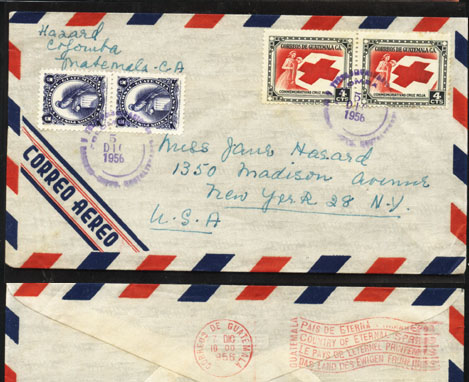 Hazard
Colomba
Guatemala. C.A
CORREOS DE GUATEMALA C.A.
CORREOS DE GUATEMALA C.A.
CONMEMORATIVAS CRUZ ROJA
4 CTS
CONMEMORATIVAS CRUZ ROJA
4 CTS
5
DIC
1956
5
DIC
1956
CORREO AEREO
Miss Jane Hazard
1350 Madison Avenue
New York 28 N.Y.
U.S.A
CORREOS DE GUATEMALA
7 DIC
1956
GUATEMALA
PAIS DE ETERNA
COUNTRY OF ETERNAL
LE PAYS DE L'ETERNEL
DAS LAND DES EWIGEN